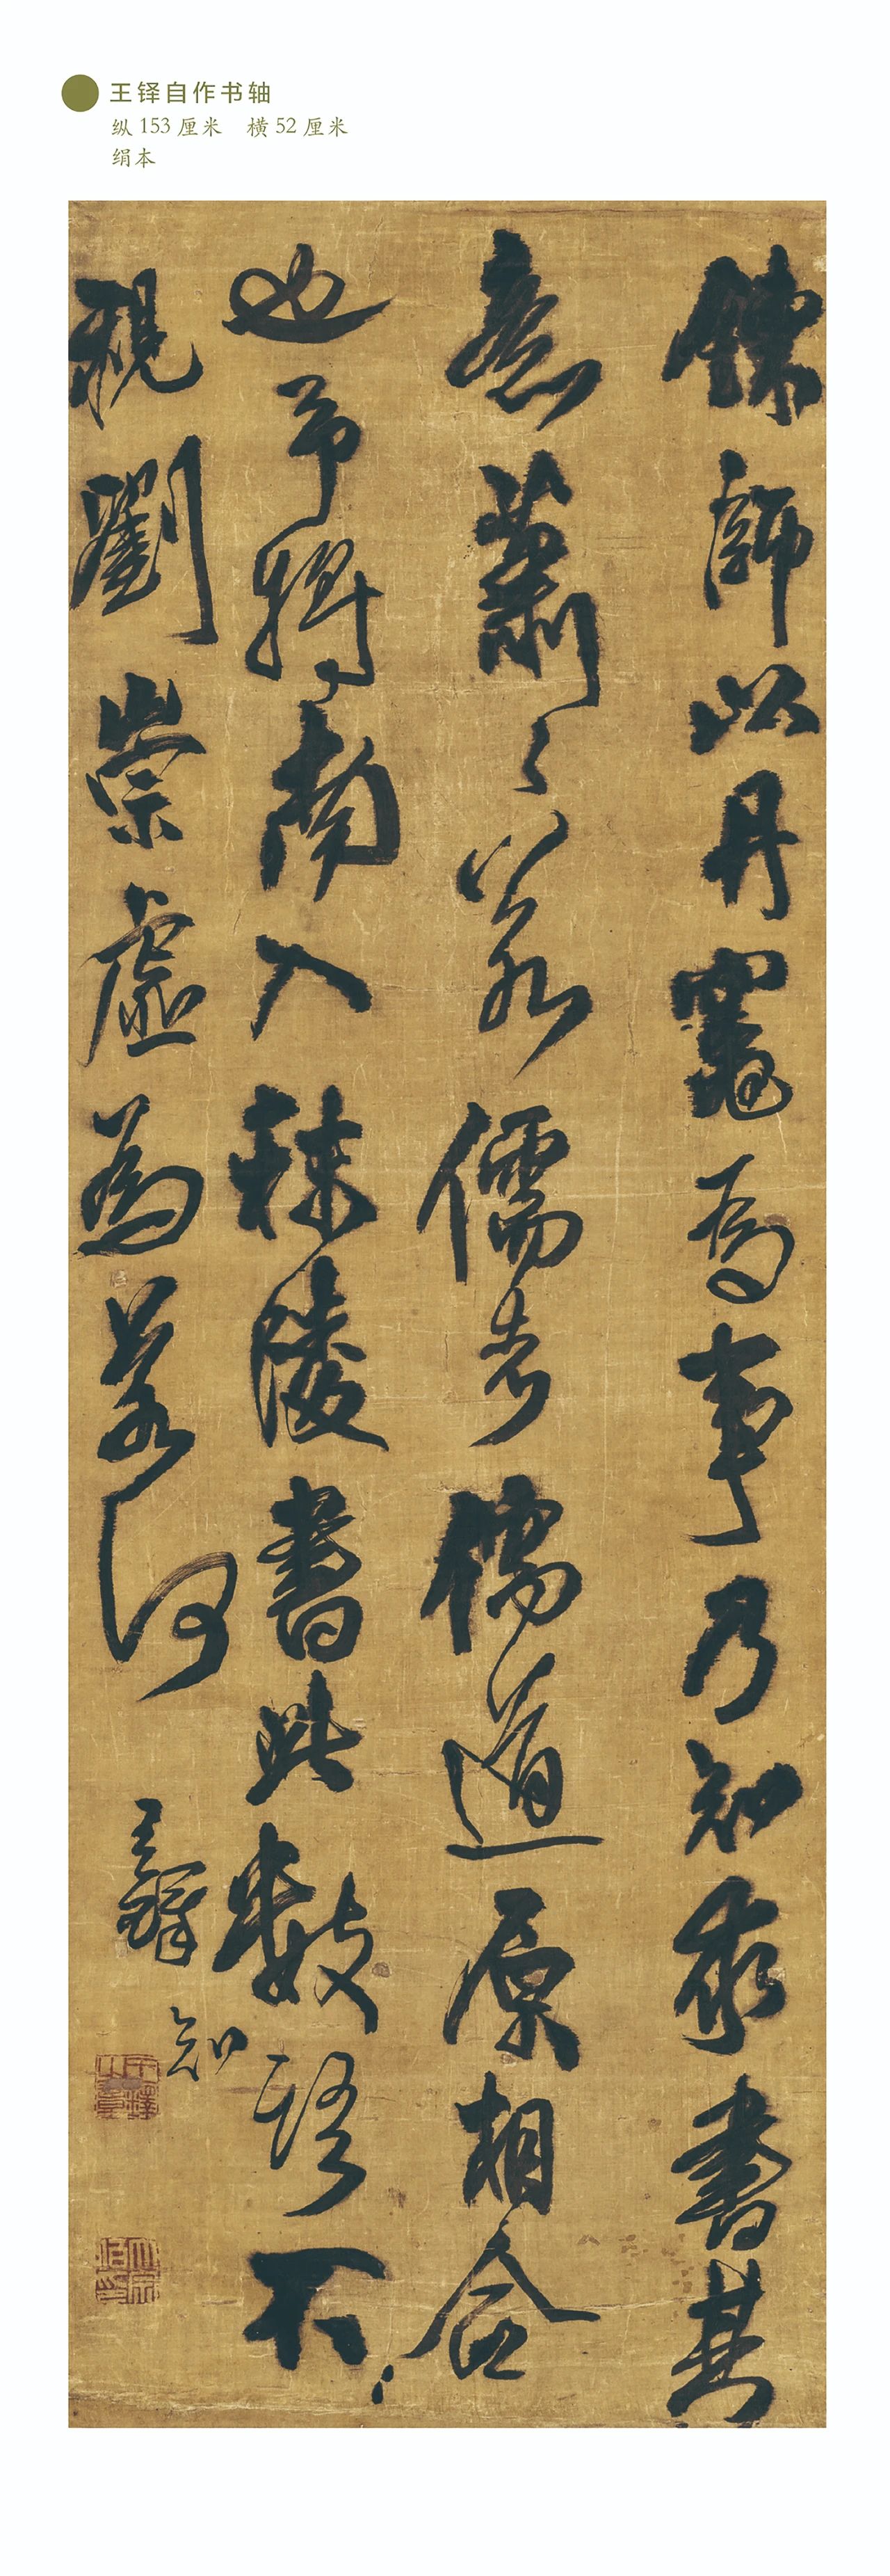 王铎自作书轴
纵 153 厘米 横 52 厘米
绢本
鍊師以丹竈為事乃知求書其
意蕭〻若儒者儒道原相合
也予將南入秣陵書此數語不
視劉崇虛為若何 王鐸
知